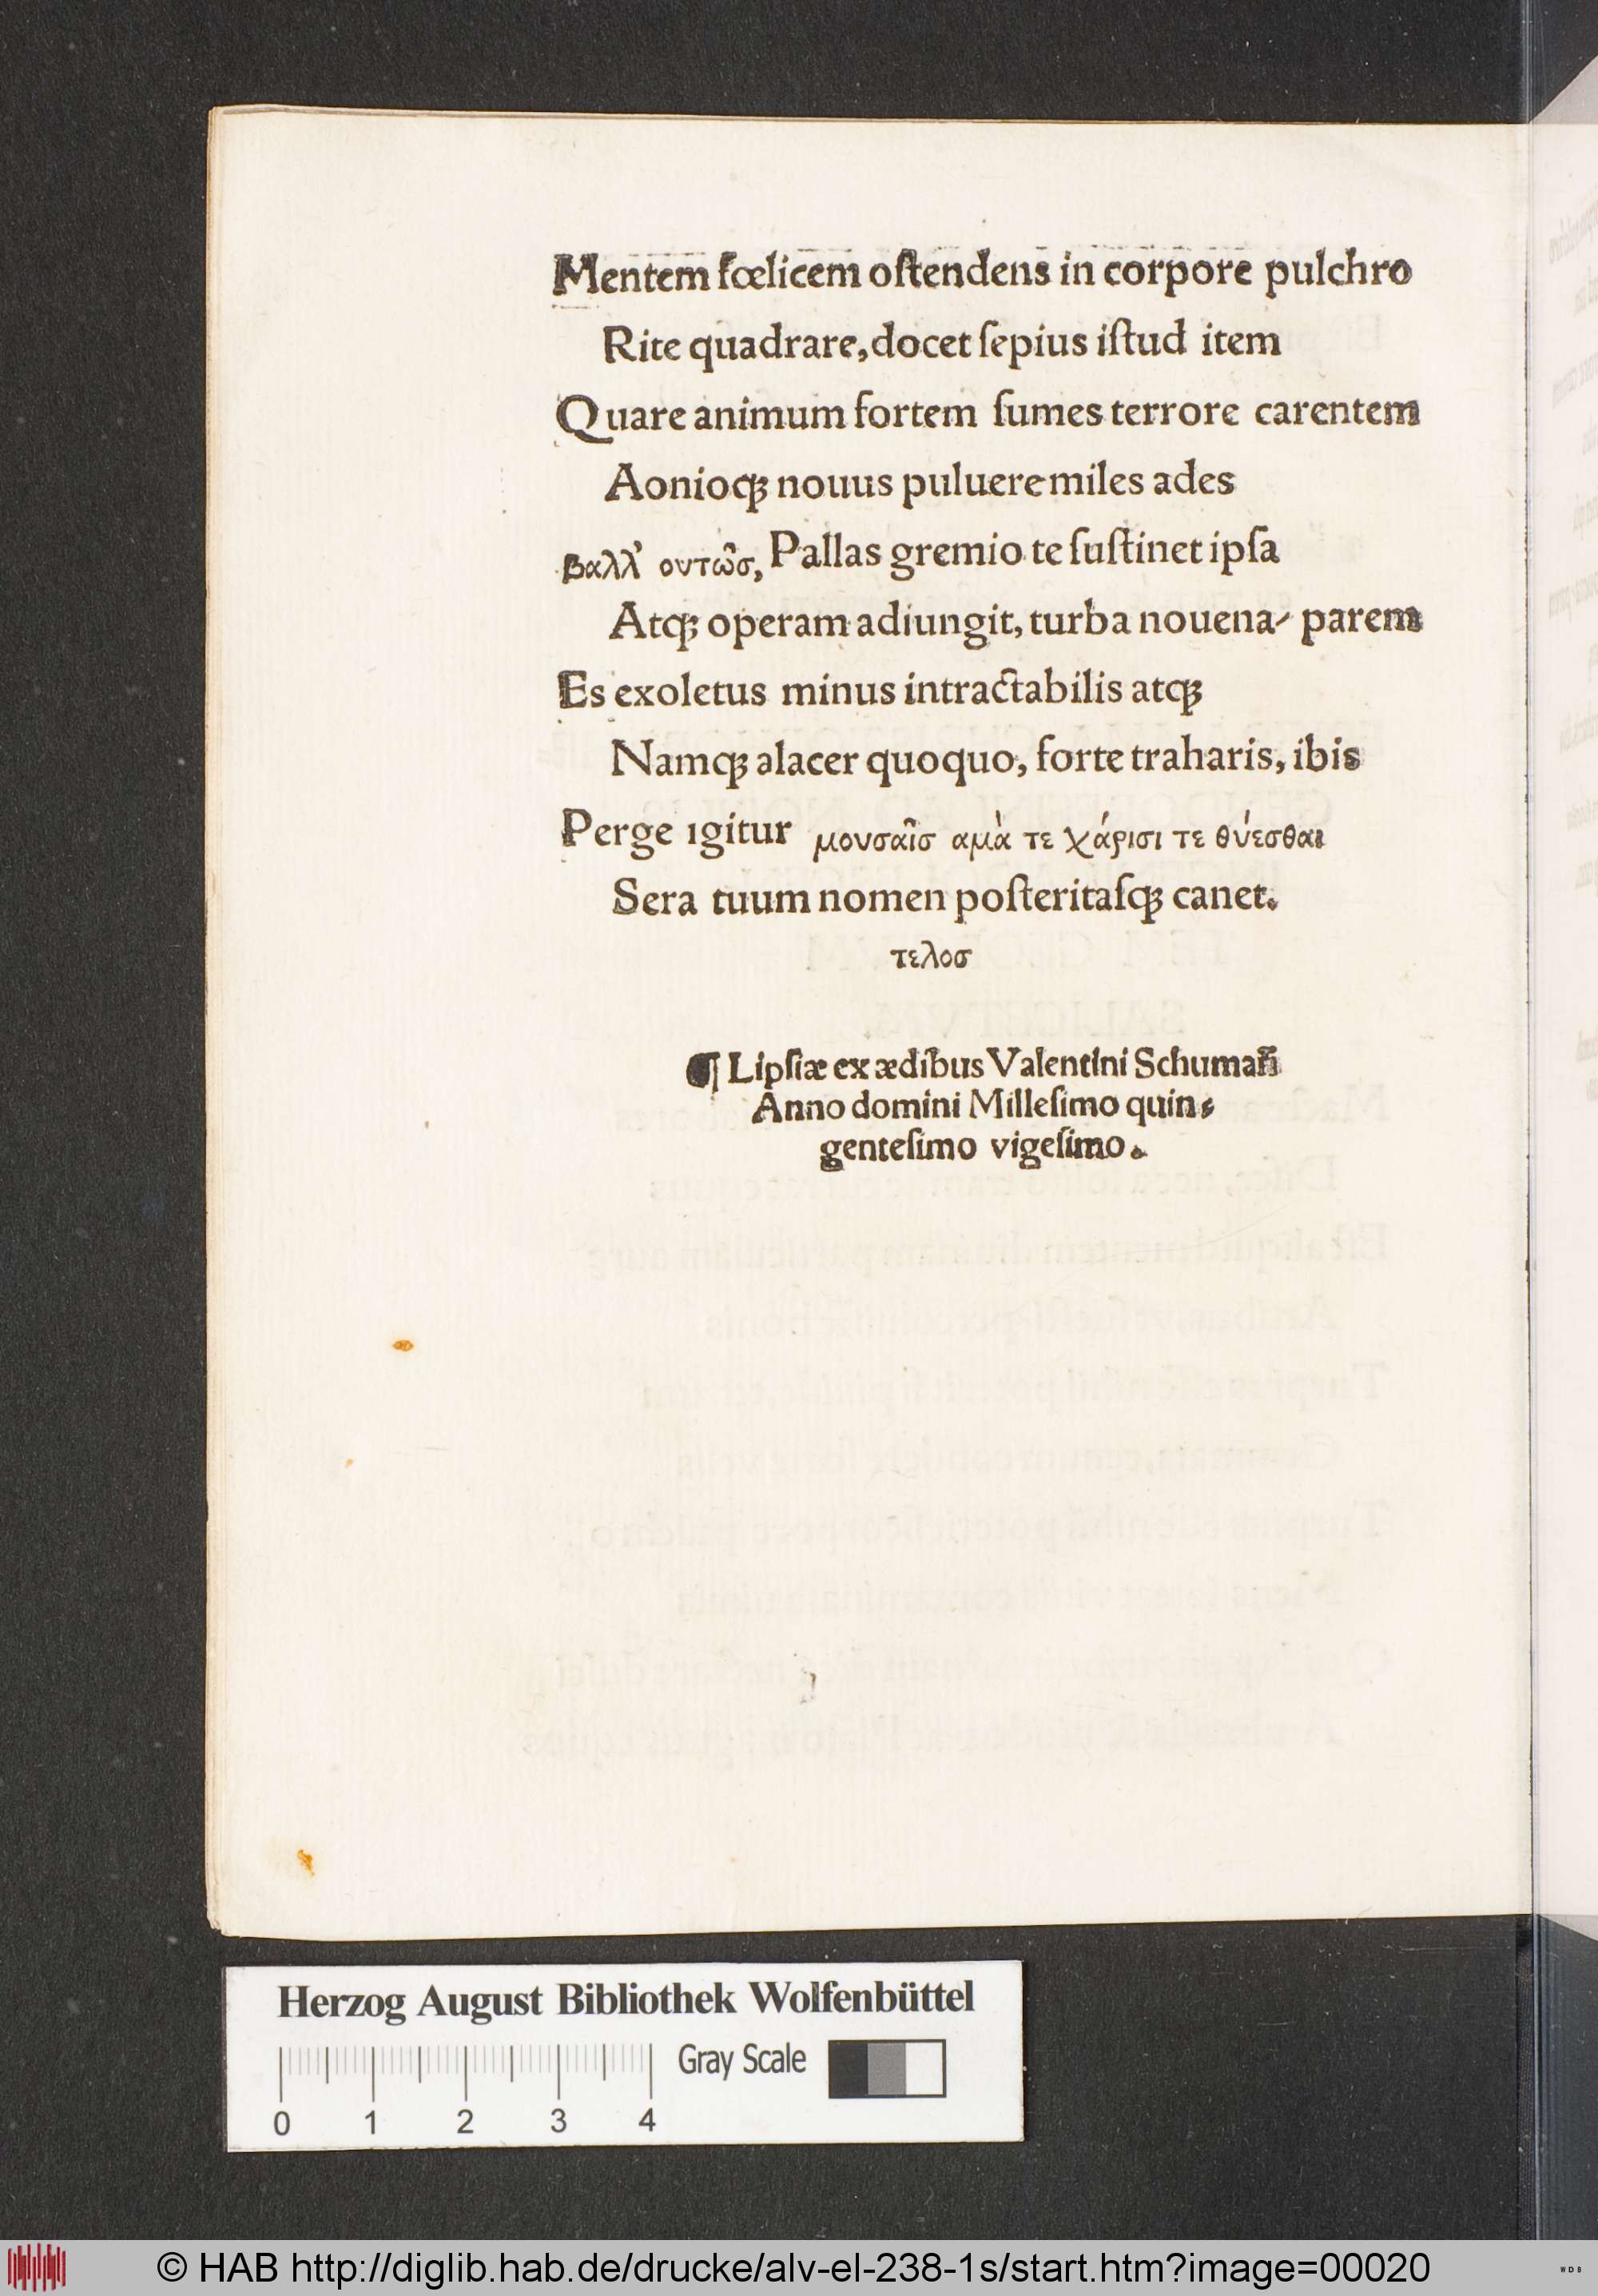 Mentem fœlicem oſtendens in corpore pulchro
Rite quadrare, docet ſepius iſtud item
Quare animum fortem ſumes terrore carentem
Aonioqꝫ nouus puluere miles ades
βαλλ᾽ ουτω̃σ, Pallas gremio te ſuſtinet ipſa
Atqꝫ operam adiungit, turba nouena⸗ parem
Es exoletus minus intractabilis atqꝫ
Namqꝫ alacer quoquo, forte traharis, ibis
Perge igitur μουσαῖσ αμὰ τε χάρισι τε θύεσθαι
Sera tuum nomen poſteritaſqꝫ canet.
τελοσ
¶ Lipſiæ ex ædibus Valentini Schumañ
Anno domini Milleſimo quin⸗
genteſimo vigeſimo.
Herzog August Bibliothek Wolfenbüttel
Gray Scale
0 1 2 3 4
© HAB http://diglib.hab.de/drucke/alv-el-238-1s/start.htm?image=00020
WDB